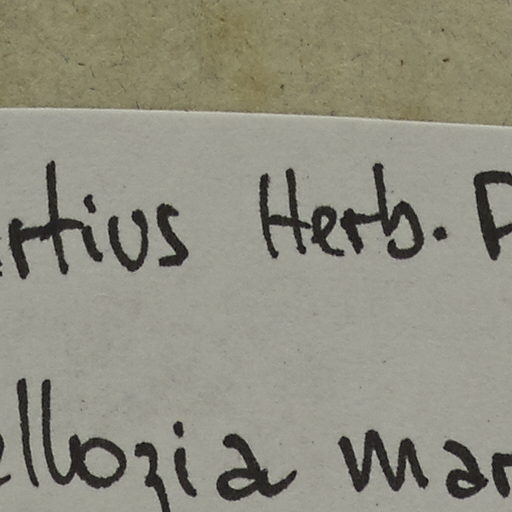 rtius Herb.
ellozia mar